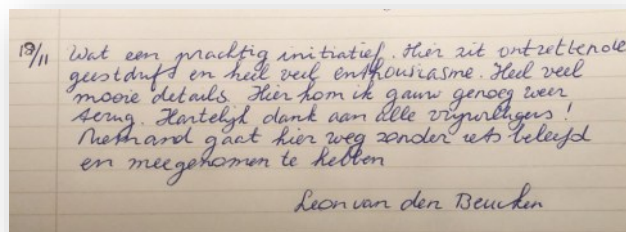 18/11 Wat een prachtig initiatief. Hier zit ontzettende
geestdrift en heel veel enthousiasme. Heel veel
mooie details. Hier kom ik gauw genoeg weer
terug. Hartelijk dank aan alle vrijwilligers!
Niemand gaat hier weg zonder iets beleefd
en meegenomen te hebben
Leon van den Beucken